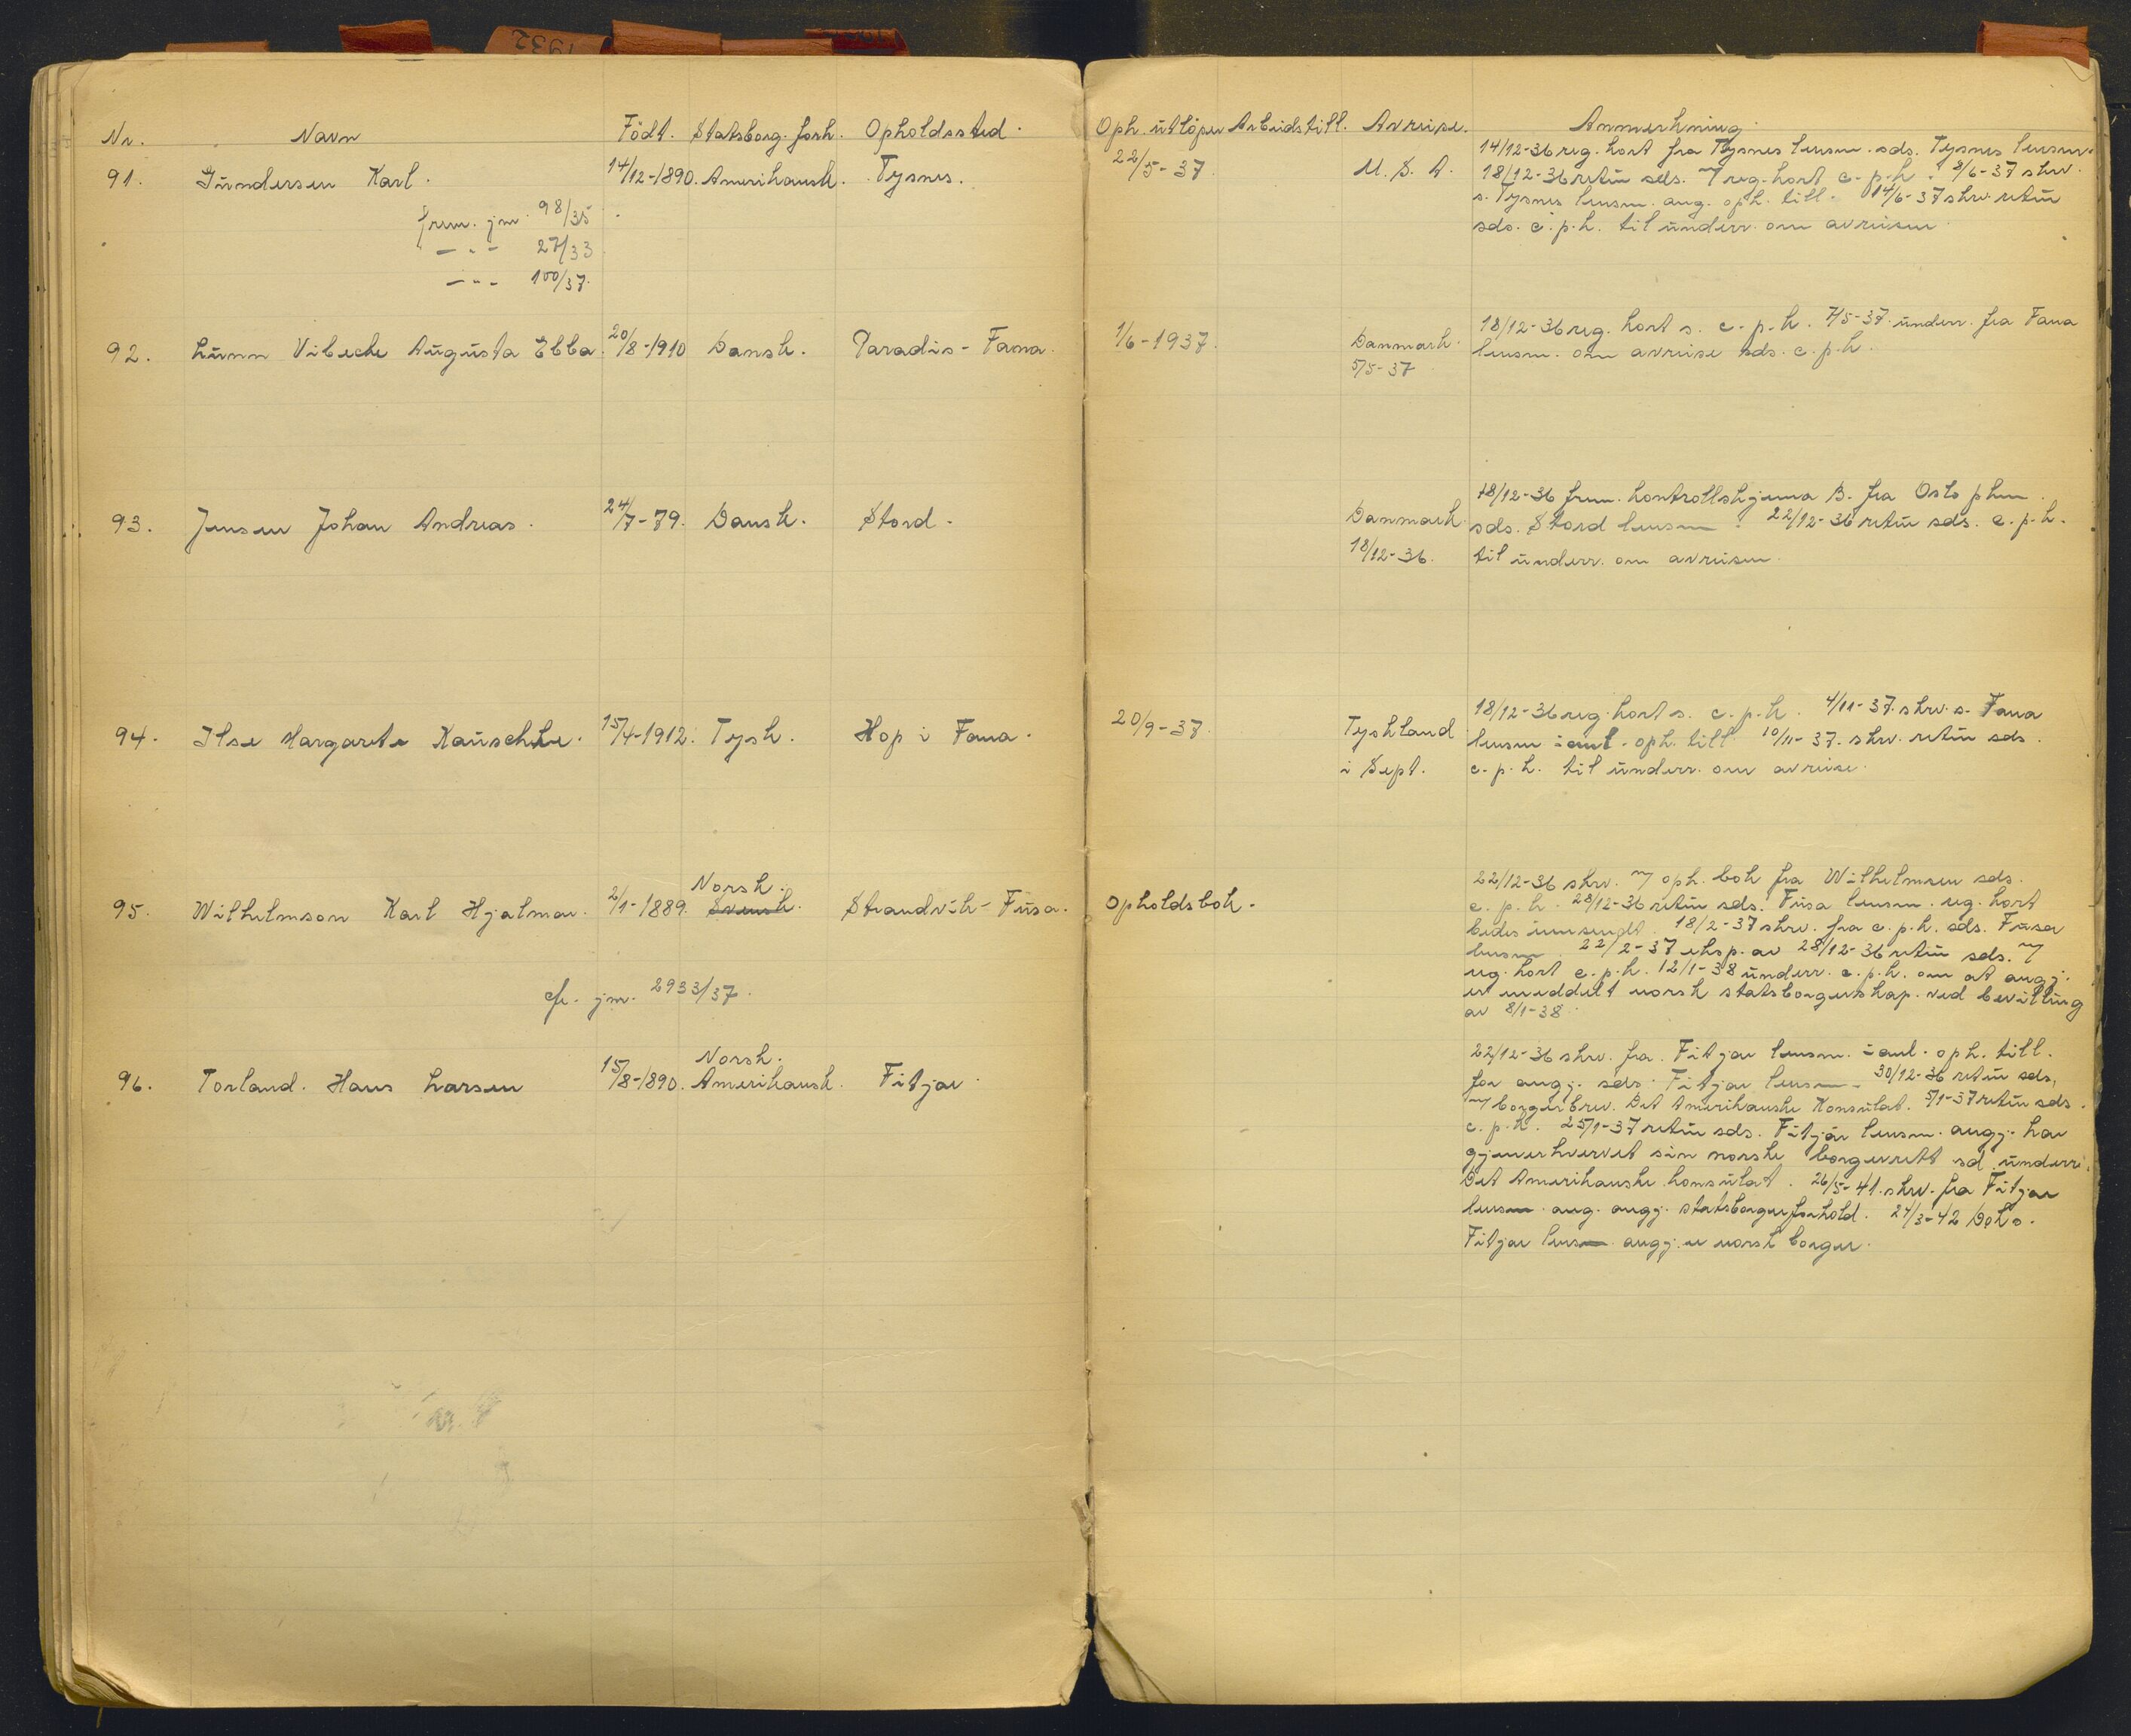 1932
Nr. Navn Födt. Statsborg. forh. Opholdssted.
91. Gundersen Karl. 14/12-1890. Amerikansk. Tysnes.
frem. jnr. 98/35
— " — 27/33
— " — 100/37.
92. Lunn Vibecke Augusta Ebba. 20/8-1910 Dansk. Paradis - Fana.
93. Jensen Johan Andreas. 24/7-79. Dansk. Stord.
94. Ilse Margarete Kauschke. 15/4-1912. Tysk. Hop i Fana.
Norsk.
95. Wilhelmson Karl Hjalmar. 2/1-1889. Svensk. Strandvik - Fusa.
cfr. jnr. 2933/37.
Norsk.
96. Torland. Hans Larsen 15/8-1890. Amerikansk. Fitjar
Oph. utlöper Arbeidstill. Avreise. Anmerkning.
14/12-36 reg. kort fra Tysnes lensm. sds. Tysnes lensm.
22/5-37. U. S. A. 18/12-36 retur sds. m/ reg. kort c.p.k. 8/6-37 skrv.
s. Tysnes lensm. ang. oph. till. 14/6-37 skrv. retur
sds. c.p.k. til underr. om avreisen
1/6-1937. Danmark. 5/5-37
18/12-36 reg. kort s. c.p.k. 7/5-37 underr. fra Fana
lensm. om avreise sds. c.p.k.
Danmark. 18/12-36.
18/12-36 frem. kontrollskjema B. fra Oslo pkm.
sds. Stord lensm. 22/12-36 retur sds. c.p.k.
til underr. om avreisen.
20/9-37. Tyskland i Sept.
18/12-36 reg. kort s. c.p.k. 4/11-37. skrv. s. Fana
lensm i anl. oph. till. 10/11-37. skrv. retur sds.
c.p.k. til underr. om avreise.
Opholdsbok.
22/12-36 skrv. m/ oph. bok fra Wilhelmsen sds.
c.p.k. 28/12-36 retur sds. Fusa lensm. reg. kort
bedes innsendt. 18/2-37 skrv. fra c.p.k. sds. Fusa
lensm. 22/2-37 eksp. av 28/12-36 retur sds. m/
reg. kort c.p.k. 12/1-38 underr. c.p.k. om at angj.
er meddelt norsk statsborgerskap. ved bevilling
av 8/1-38.
22/12-36 skrv. fra. Fitjar lensm. i anl. oph. till.
for angj. sds. Fitjar lensm. 30/12-36 retur sds.
m/ borgerbrev. Det Amerikanske Konsulat. 5/1-37 retur sds.
c.p.k. 25/1-37 retur sds. Fitjar lensm. angj. har
gjenerhvervet sin norske borgerrett sd. underr.
Det Amerikanske konsulat. 26/5-41. skrv. fra Fitjar
lensm. ang. angj. statsborgerforhold. 24/3-42
Fitjar lensm. angj. er norsk borger.